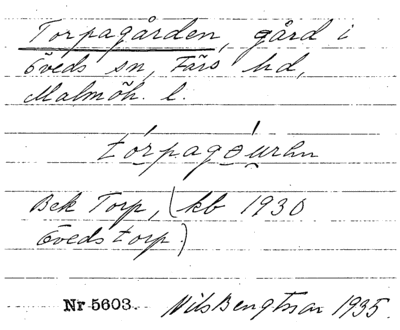 Torpagården, gård i
Öveds sn, Färs hd,
Malmöh. l.
tórpagɷ́urhn
Bek Torp, (kb 1930
Öveds torp.)
Nr 5603. Nils Bengtsson 1935.